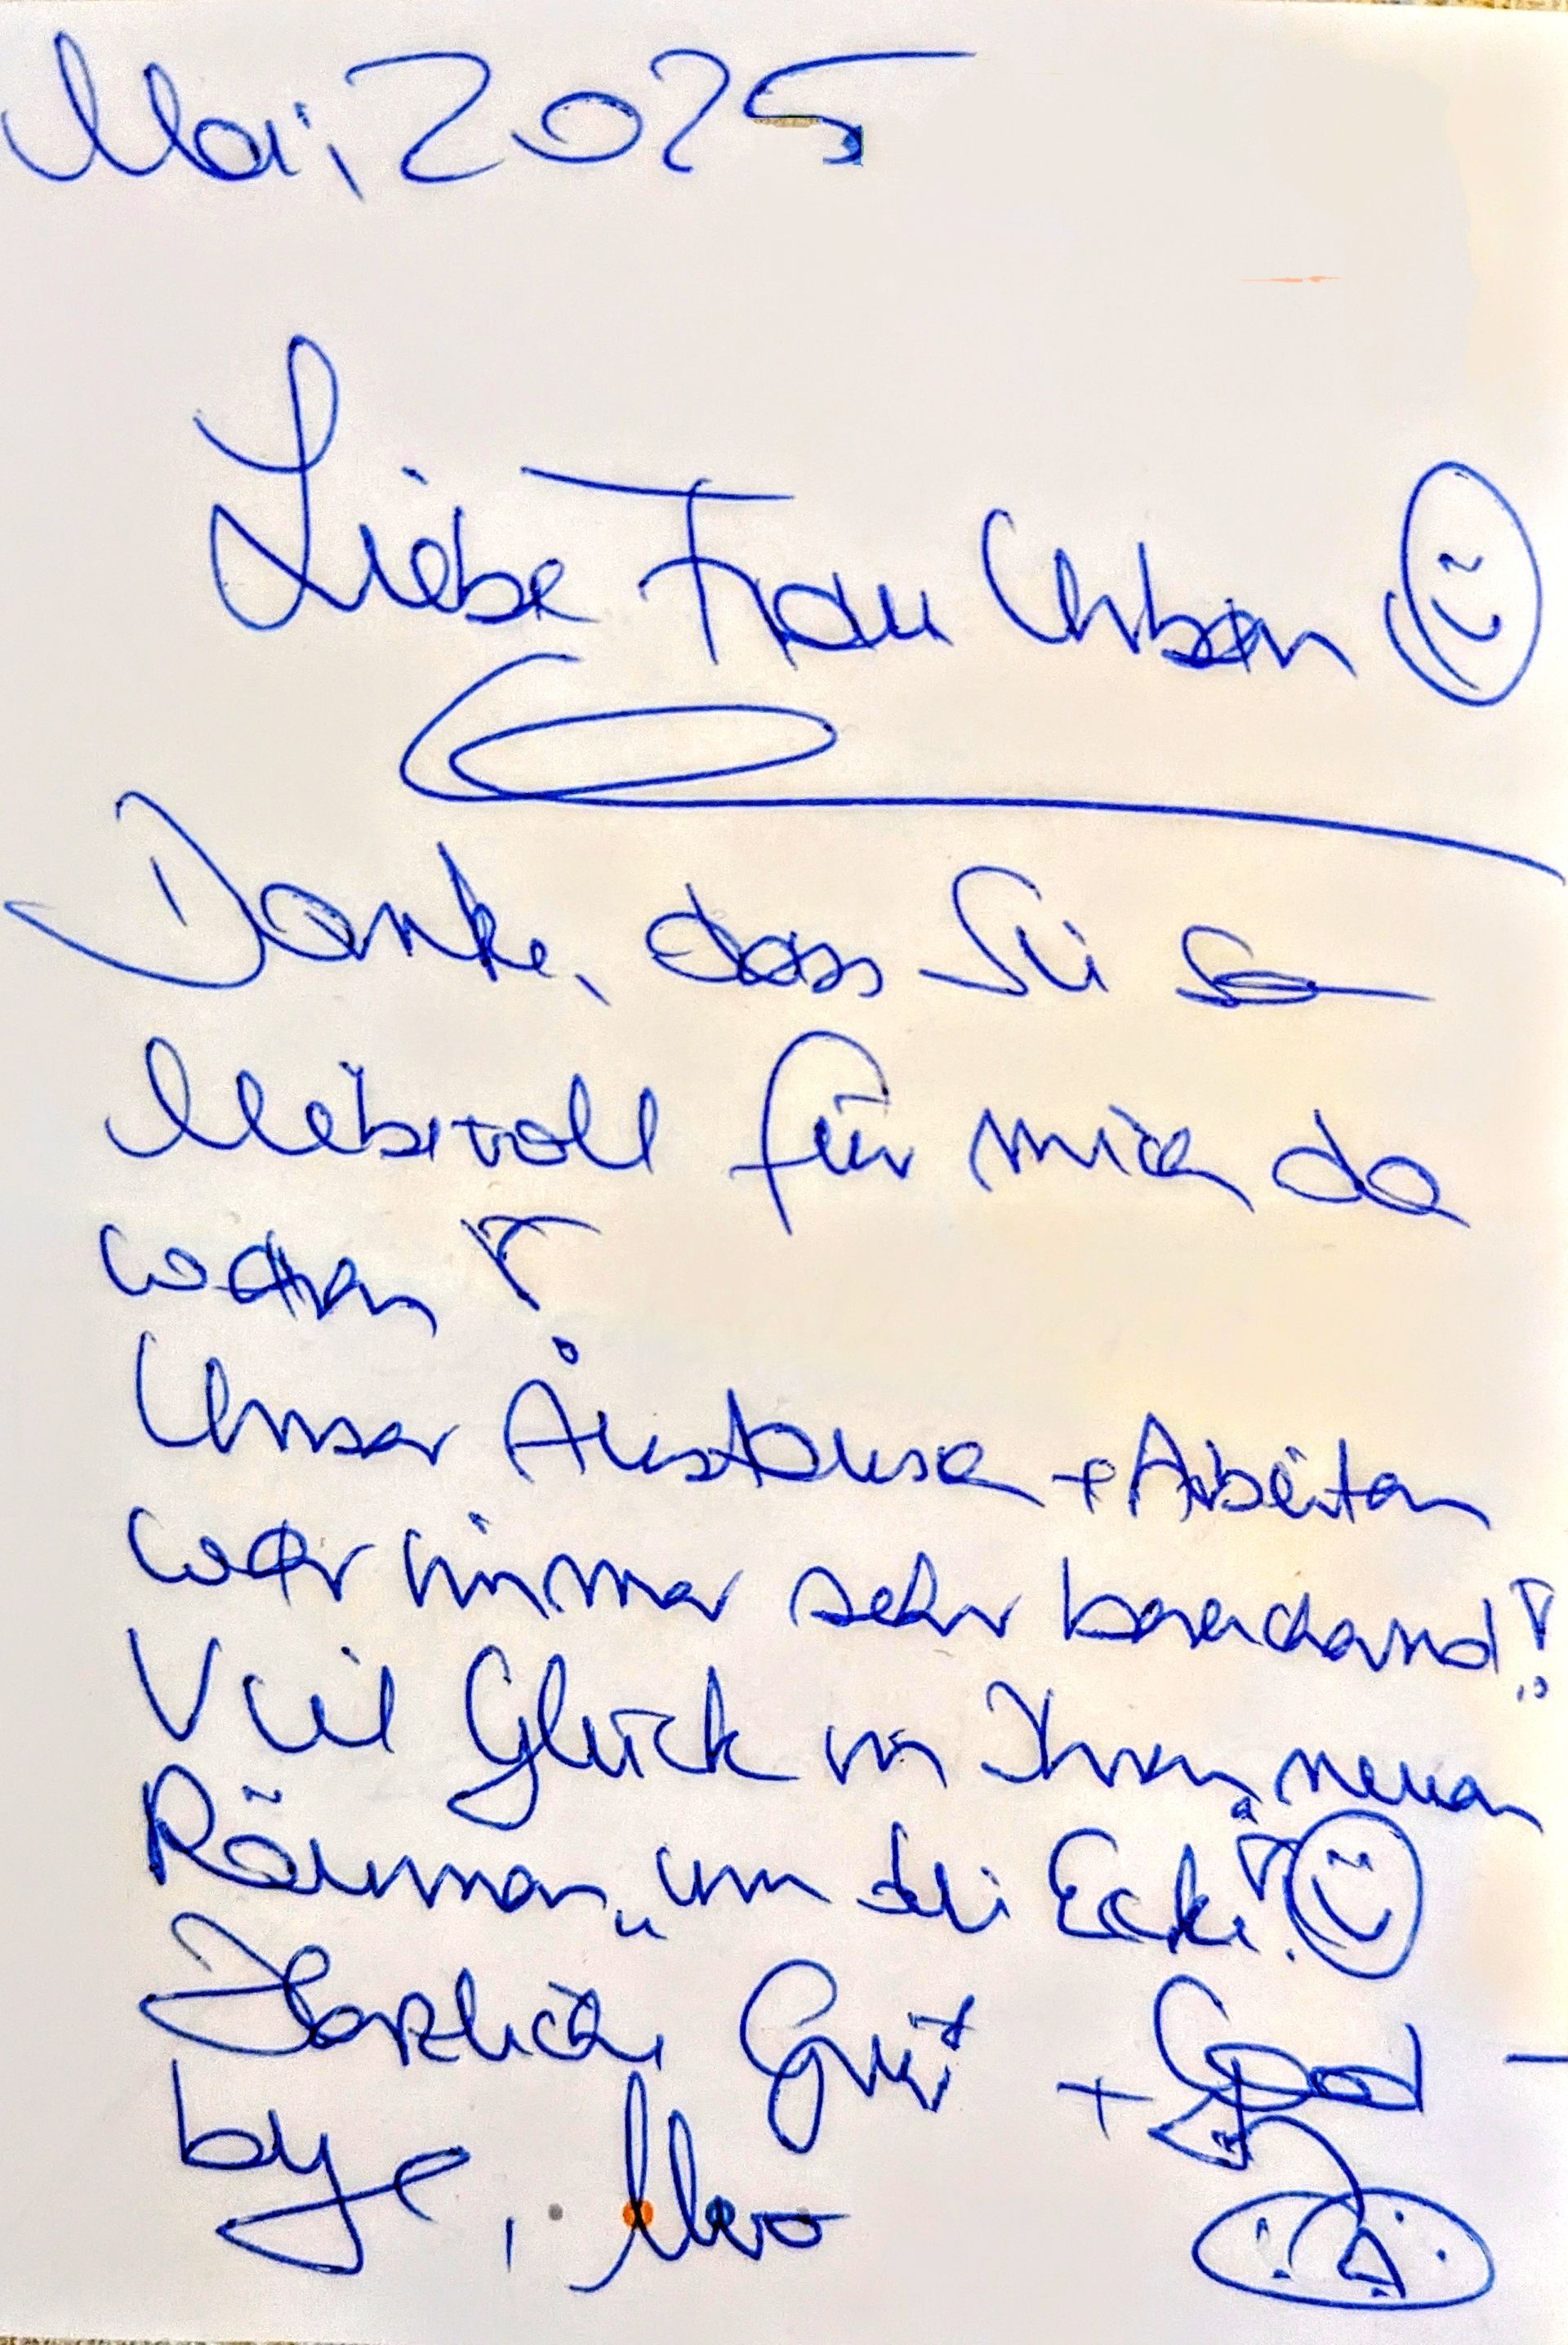 Mai 2025
Liebe Frau Urban
Danke, dass Sie so
liebevoll für mich da
waren!
Unser Austausch + Arbeiten
war immer sehr bereichernd!
Viel Glück in Ihren neuen
Räumen „um die Ecke"!
Herzliche Grüße + Good -
bye,